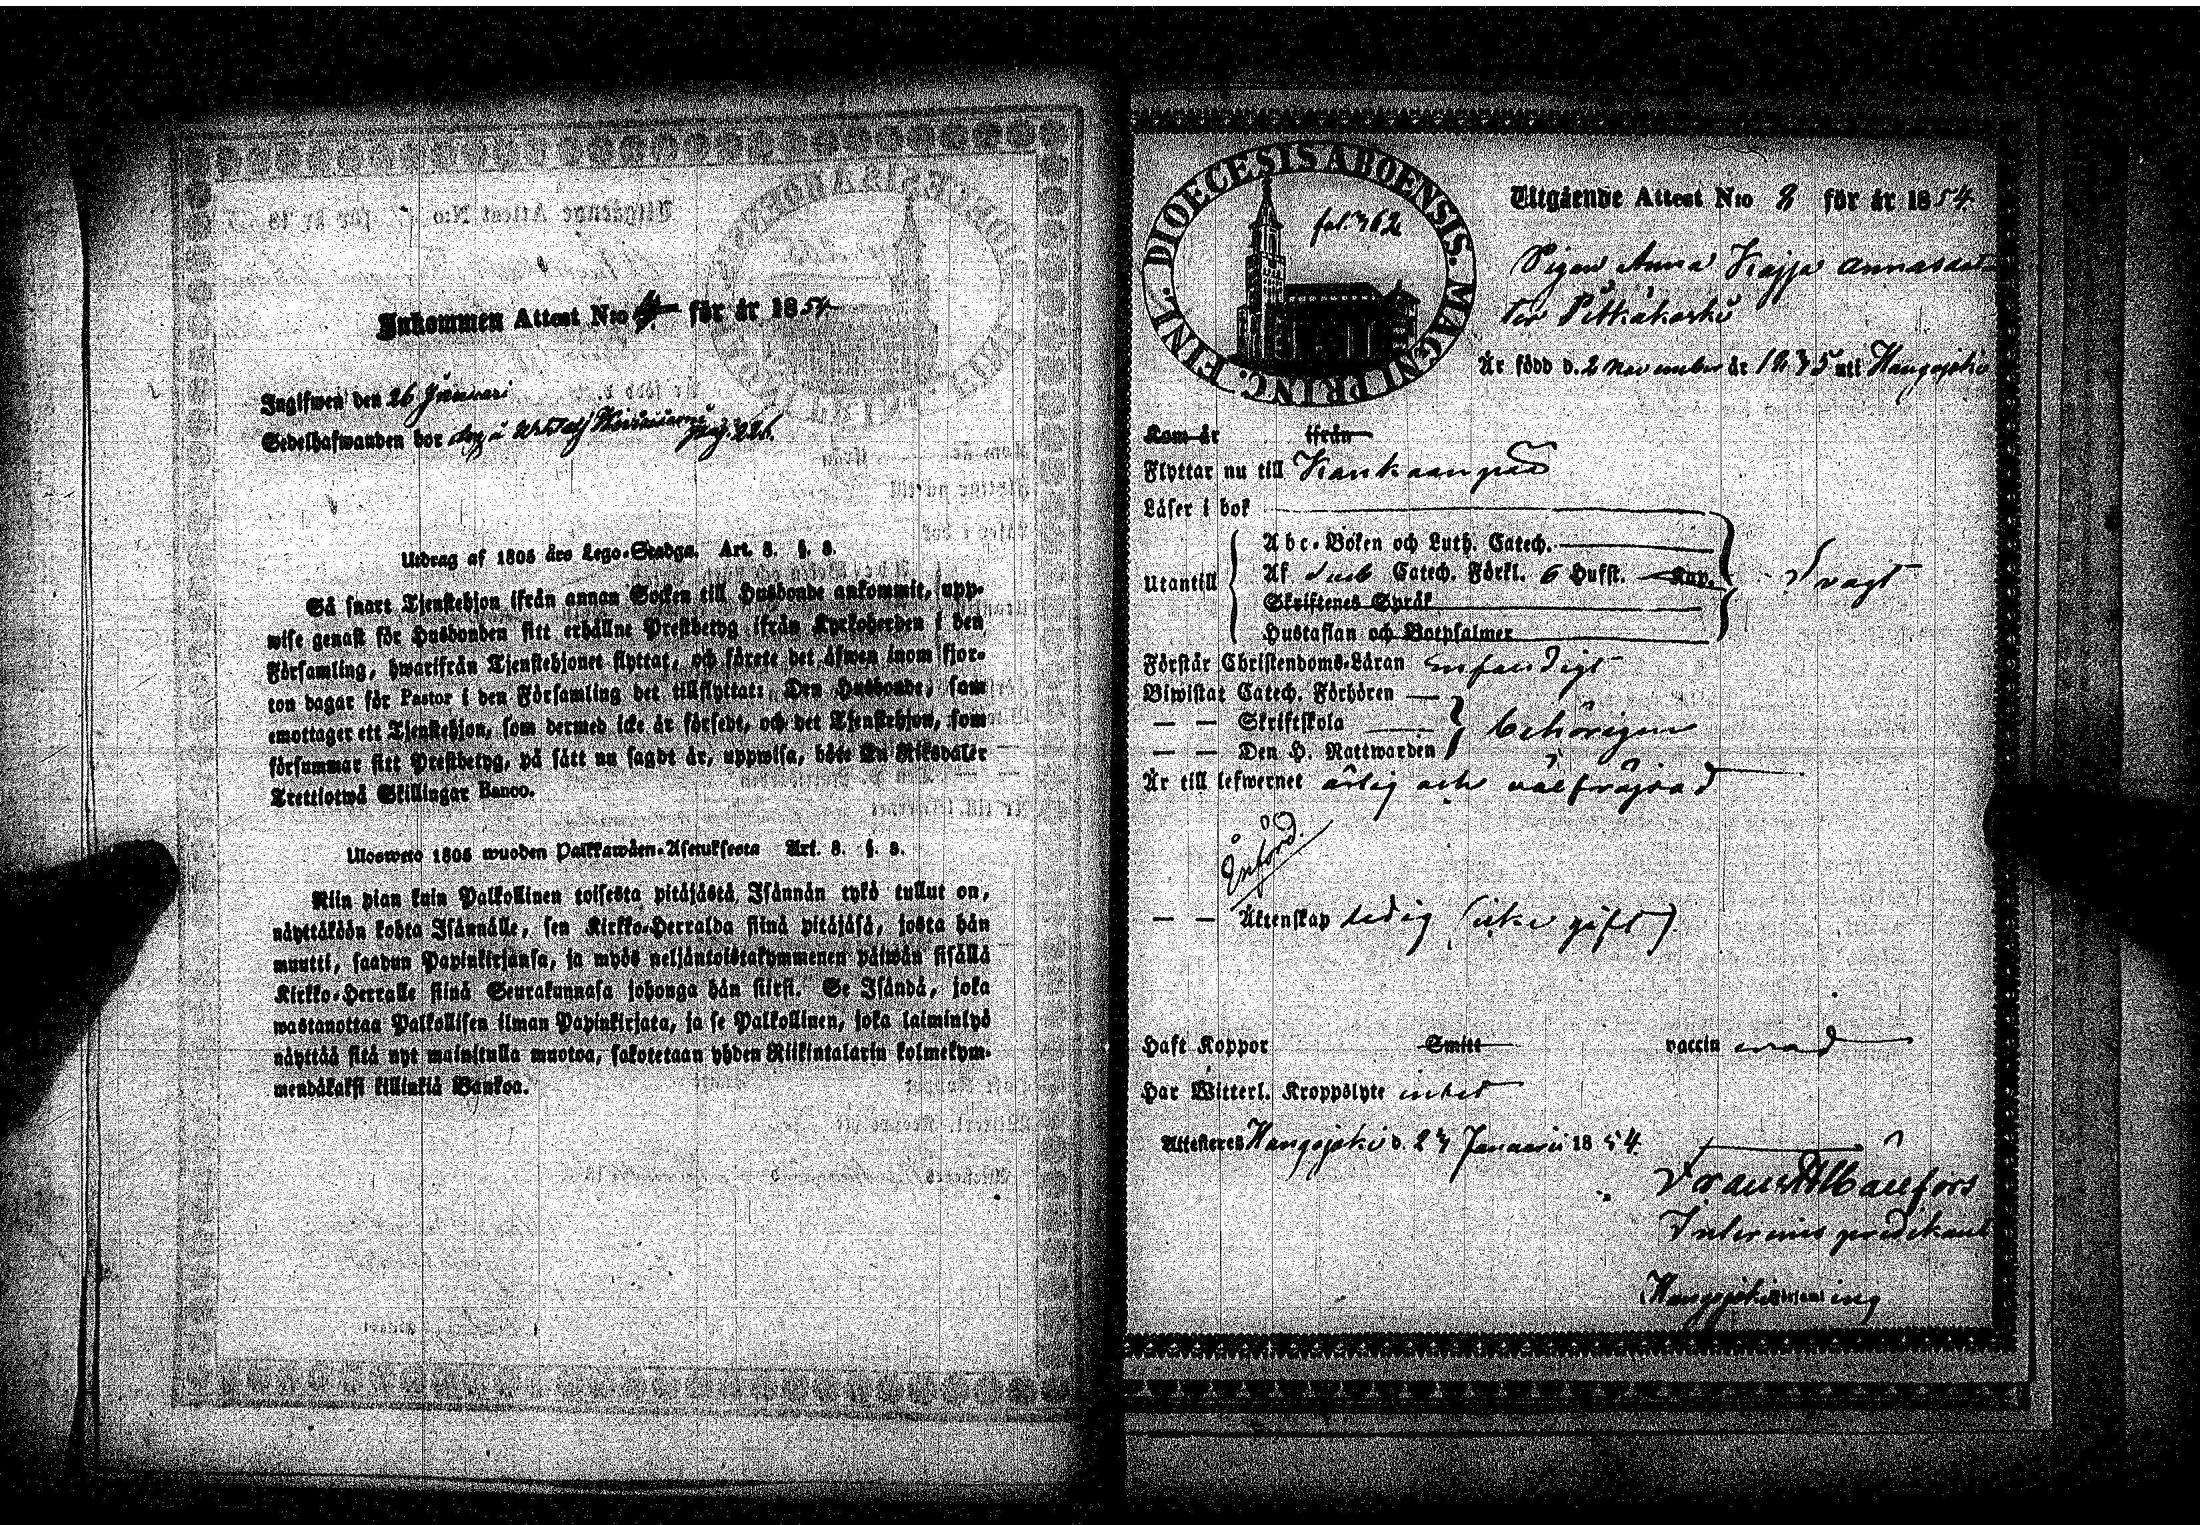 Inkommen Attest N:o 4 för år 1854
Ingifwen den 26 Januari
Sedelhafwanden bor pag. 226.
Utdrag af 1805 års Lego-Stadga. Art. 3. §. 8.
Så snart Tjenstehjon ifrån annan Socken till Husbonde ankommit, upp-
wise genast för Husbonden sitt erhållne Prestbetyg ifrån Kyrkoherden i den
Församling, hwarifrån Tjenstehjonet flyttat, och förete det äfwen inom fjor-
ton dagar för Pastor i den Församling det tillflyttat: Den Husbonde, som
emottager ett Tjenstehjon, som dermed icke är försedt, och det Tjenstehjon, som
försummar sitt Prestbetyg, på sätt nu sagdt är, uppwisa, böte En Riksdaler
Trettiotwå Skillingar Banco.
Ulosweto 1805 wuoden Palkkawäen-Asetuksesta Art. 3. §. 8.
Niin pian kuin Palkollinen toisesta pitäjästä Isännän tykö tullut on,
näyttäköön kohta Isännälle, sen Kirkko-Herralda siinä pitäjäsä, josta hän
muutti, saadun Papinkirjansa, ja myös neljäntoistakymmenen päiwän sisällä
Kirkko-Herralle siinä Seurakunnasa johonga hän siirsi. Se Isändä, joka
wastanottaa Palkollisen ilman Papinkirjata, ja se Palkollinen, joka laiminlyö
näyttää sitä nyt mainitulla muotoa, sakotetaan yhden Riikintalarin kolmekym-
mendäkaksi killinkiä Bankoa.
DIOECESIS ABOENSIS. MAGNI PRINC. FINL.
fol. 362
Utgående Attest N:o 2 för år 1854
Pigan Anna Kajsa Annasdot-
ter Pitkäkoski
Är född d. 2 November år 1835 uti Hongojoki
Kom år ifrån
Flyttar nu till Kankaanpää
Läser i bok
Utantill
Abc-Boken och Luth. Catech.
Af Catech. Förkl. 6 Hufst. Kap.
Skriftenes Språk
Hustaflan och Botpsalmer
Svagt
Förstår Christendoms-Läran enfaldigt
Biwistat Catech. Förhören
— — Skriftskola
— — Den H. Nattwarden
behörigen
Är till lefwernet ärlig och välfräjdad
Införd.
— — Äktenskap ledig (icke gift).
Haft Koppor Smitt vaccinerad
Har Witterl. Kroppslyte intet
Attesteras Hongojoki d. 23 Januarii 1854.
Frans
Interims predikant
Hongojoki